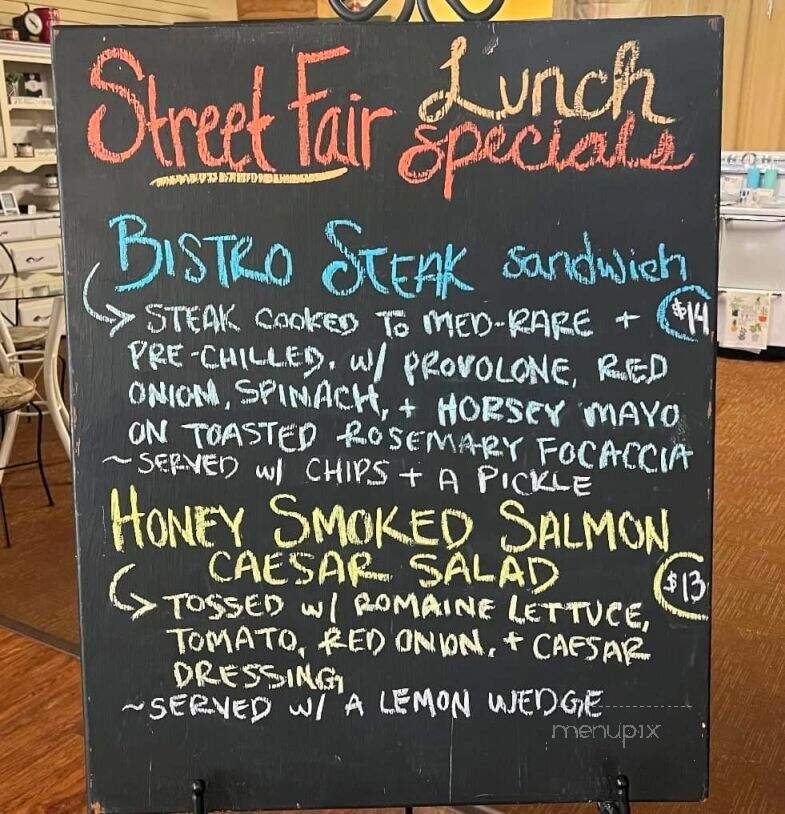 Street Fair Lunch Specials
BISTRO STEAK sandwich
STEAK COOKED TO MED-RARE + $14
PRE-CHILLED. W/ PROVOLONE, RED
ONION, SPINACH, + HORSEY MAYO
ON TOASTED ROSEMARY FOCACCIA
~SERVED W/ CHIPS + A PICKLE
HONEY SMOKED SALMON
CAESAR SALAD $13
TOSSED W/ ROMAINE LETTUCE,
TOMATO, RED ONION, + CAESAR
DRESSING
~SERVED W/ A LEMON WEDGE
menupix